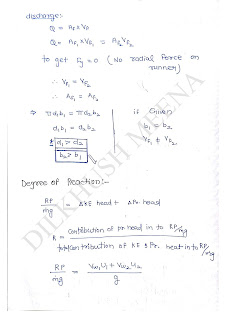 discharge:
Q = AF × VF
Q = AF1 × VF1 = AF2 VF2
to get Fy = 0 (No radial force on runner)
∴ VF1 = VF2
∴ AF1 = AF2
⇒ πd1b1 = πd2b2
d1b1 = d2b2
d1 > d2
b2 > b1
if Given
b1 = b2
VF1 ≠ VF2
Degree of Reaction:-
RP/mg = ΔKE head + ΔPr head
R = contribution of pr head in to RP/mg
total contribution of KE & Pr. head in to RP/mg
RP/mg = Vw1U1 + Vw2U2 / g
DILKHUSH MEENA